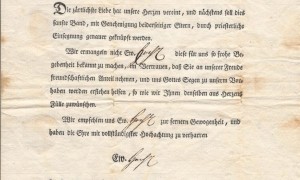 Die zärtlichste Liebe hat unsere Herzen vereint, und nächstens soll dies
sanfte Band, mit Genehmigung beiderseitiger Eltern, durch priesterliche
Einsegnung genauer geknüpfet werden.
Wir ermangeln nicht Ew. diese für uns so frohe Be-
gebenheit bekannt zu machen, im Vertrauen, daß Sie an unserer Freude
freundschaftlichen Anteil nehmen, und uns Gottes Segen zu unserm Vor-
haben werden erflehen helfen, so wie wir Ihnen denselben aus Herzens
Fülle zuwünschen.
Wir empfehlen uns Ew. zur fernern Gewogenheit, und
haben die Ehre mit vollständigster Hochachtung zu verharren
Ew.